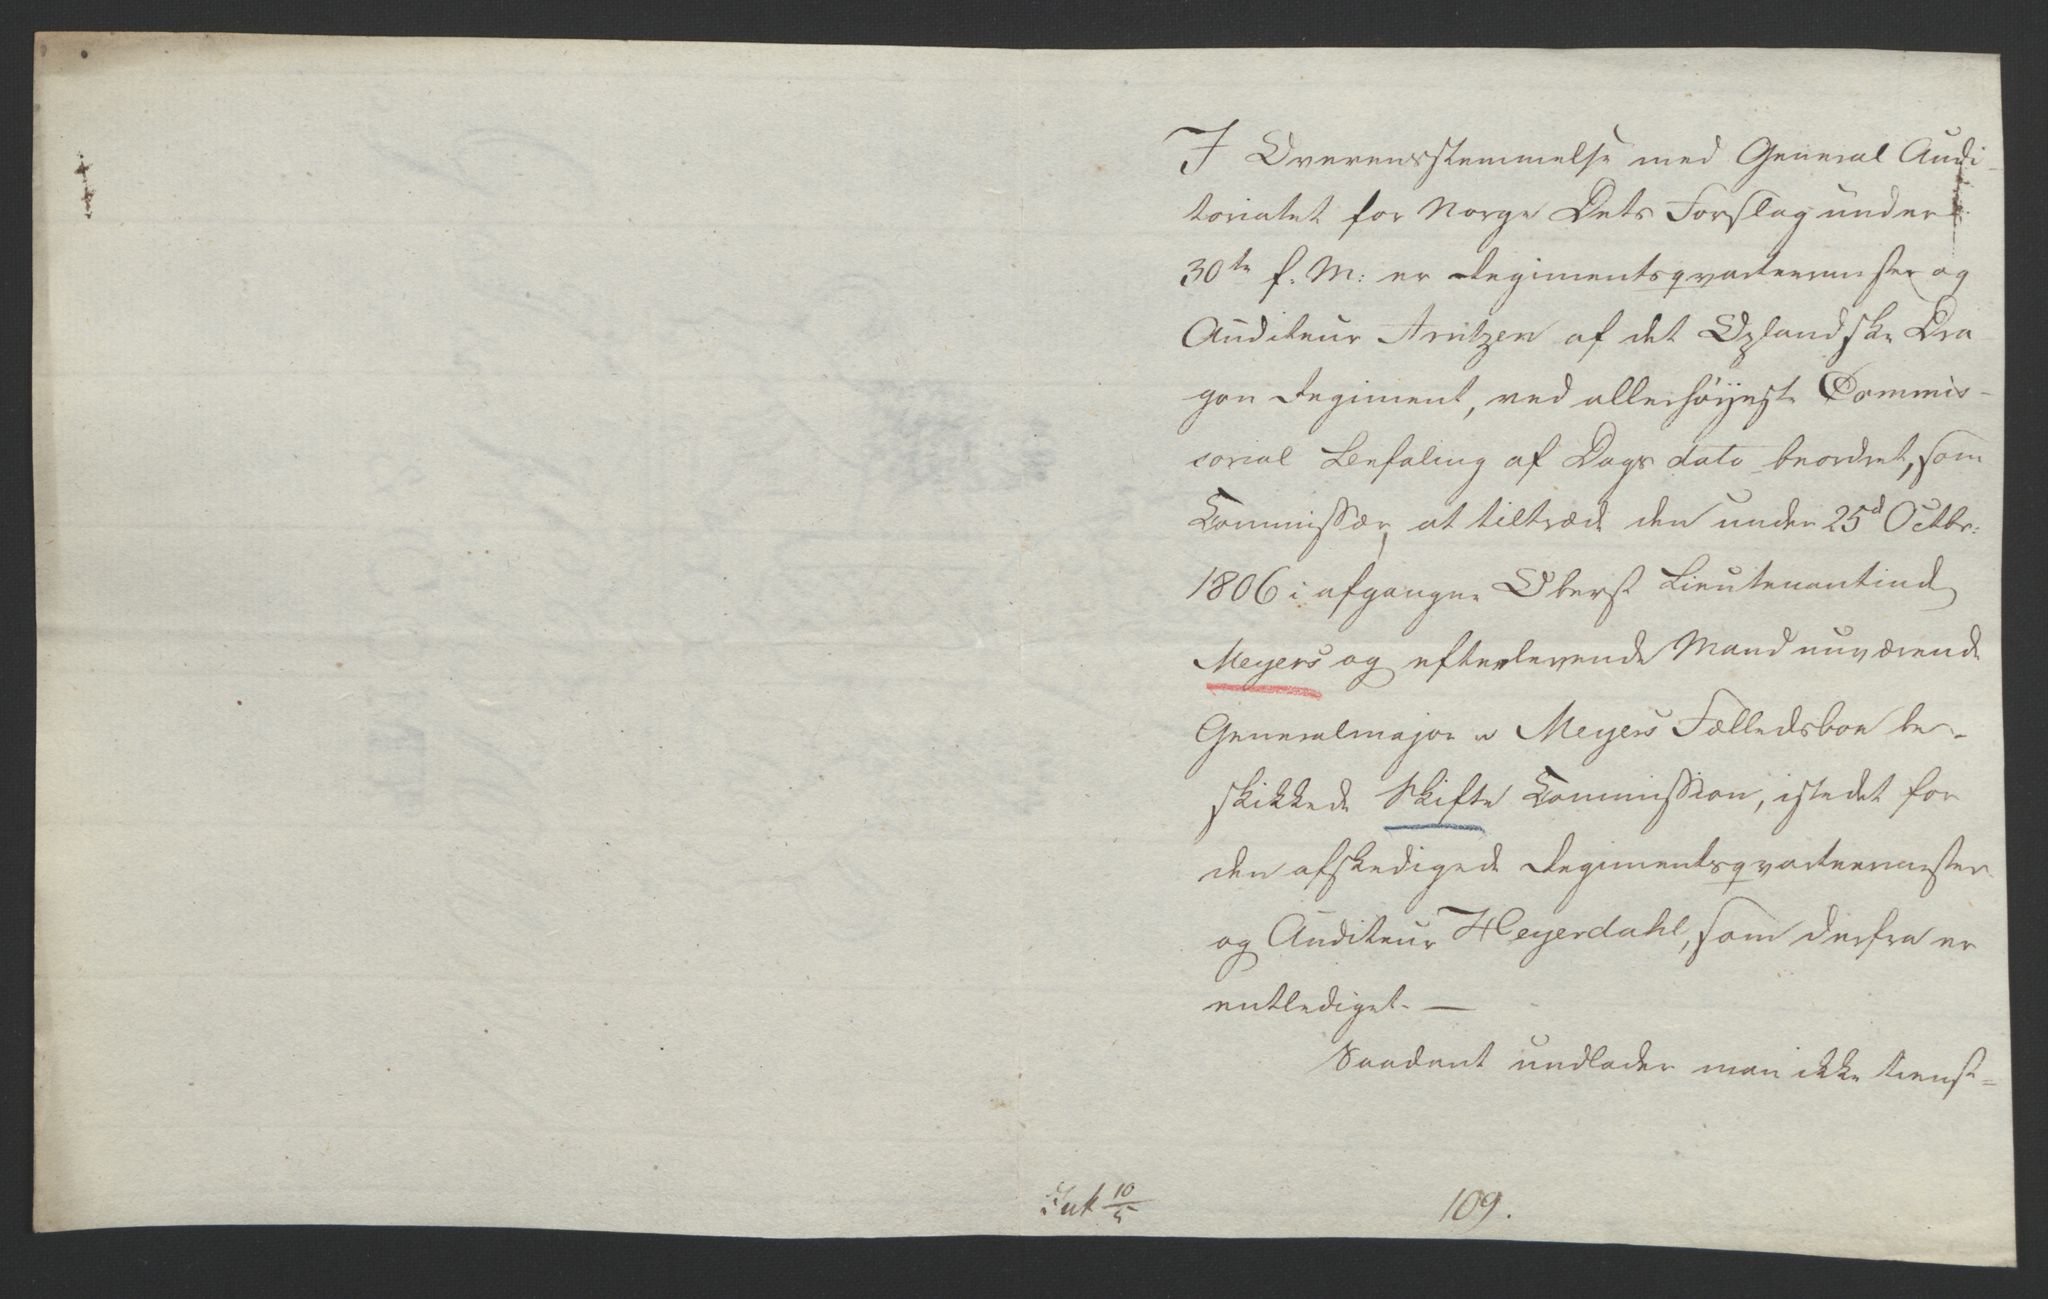 I Overensstemmelse med General Audi-
toriatet for Norge Dets Forslag under
30te f. M: er Regimentsqvarteermester og
Auditeur Arntzen af det Oplandske Dra
gon Regiment, ved allerhøijeste Commis-
sorial Befaling af Dags dato beordret, som
Commissær, at tiltræde den under 25d Octbr:
1806 i afgangne Oberst Lieutenantinde
Meyers og efterlevende Mand nuværende
Generalmajor v Meyers Fælledsboe be-
skikkede Skifte Commission, istedet for
den afskedigede Regimentsqvarteermester
og Auditeur Heyerdahl, som derfra er
entlediget. —
Saadant undlader man ikke tienst=
Ink 10/5
109.